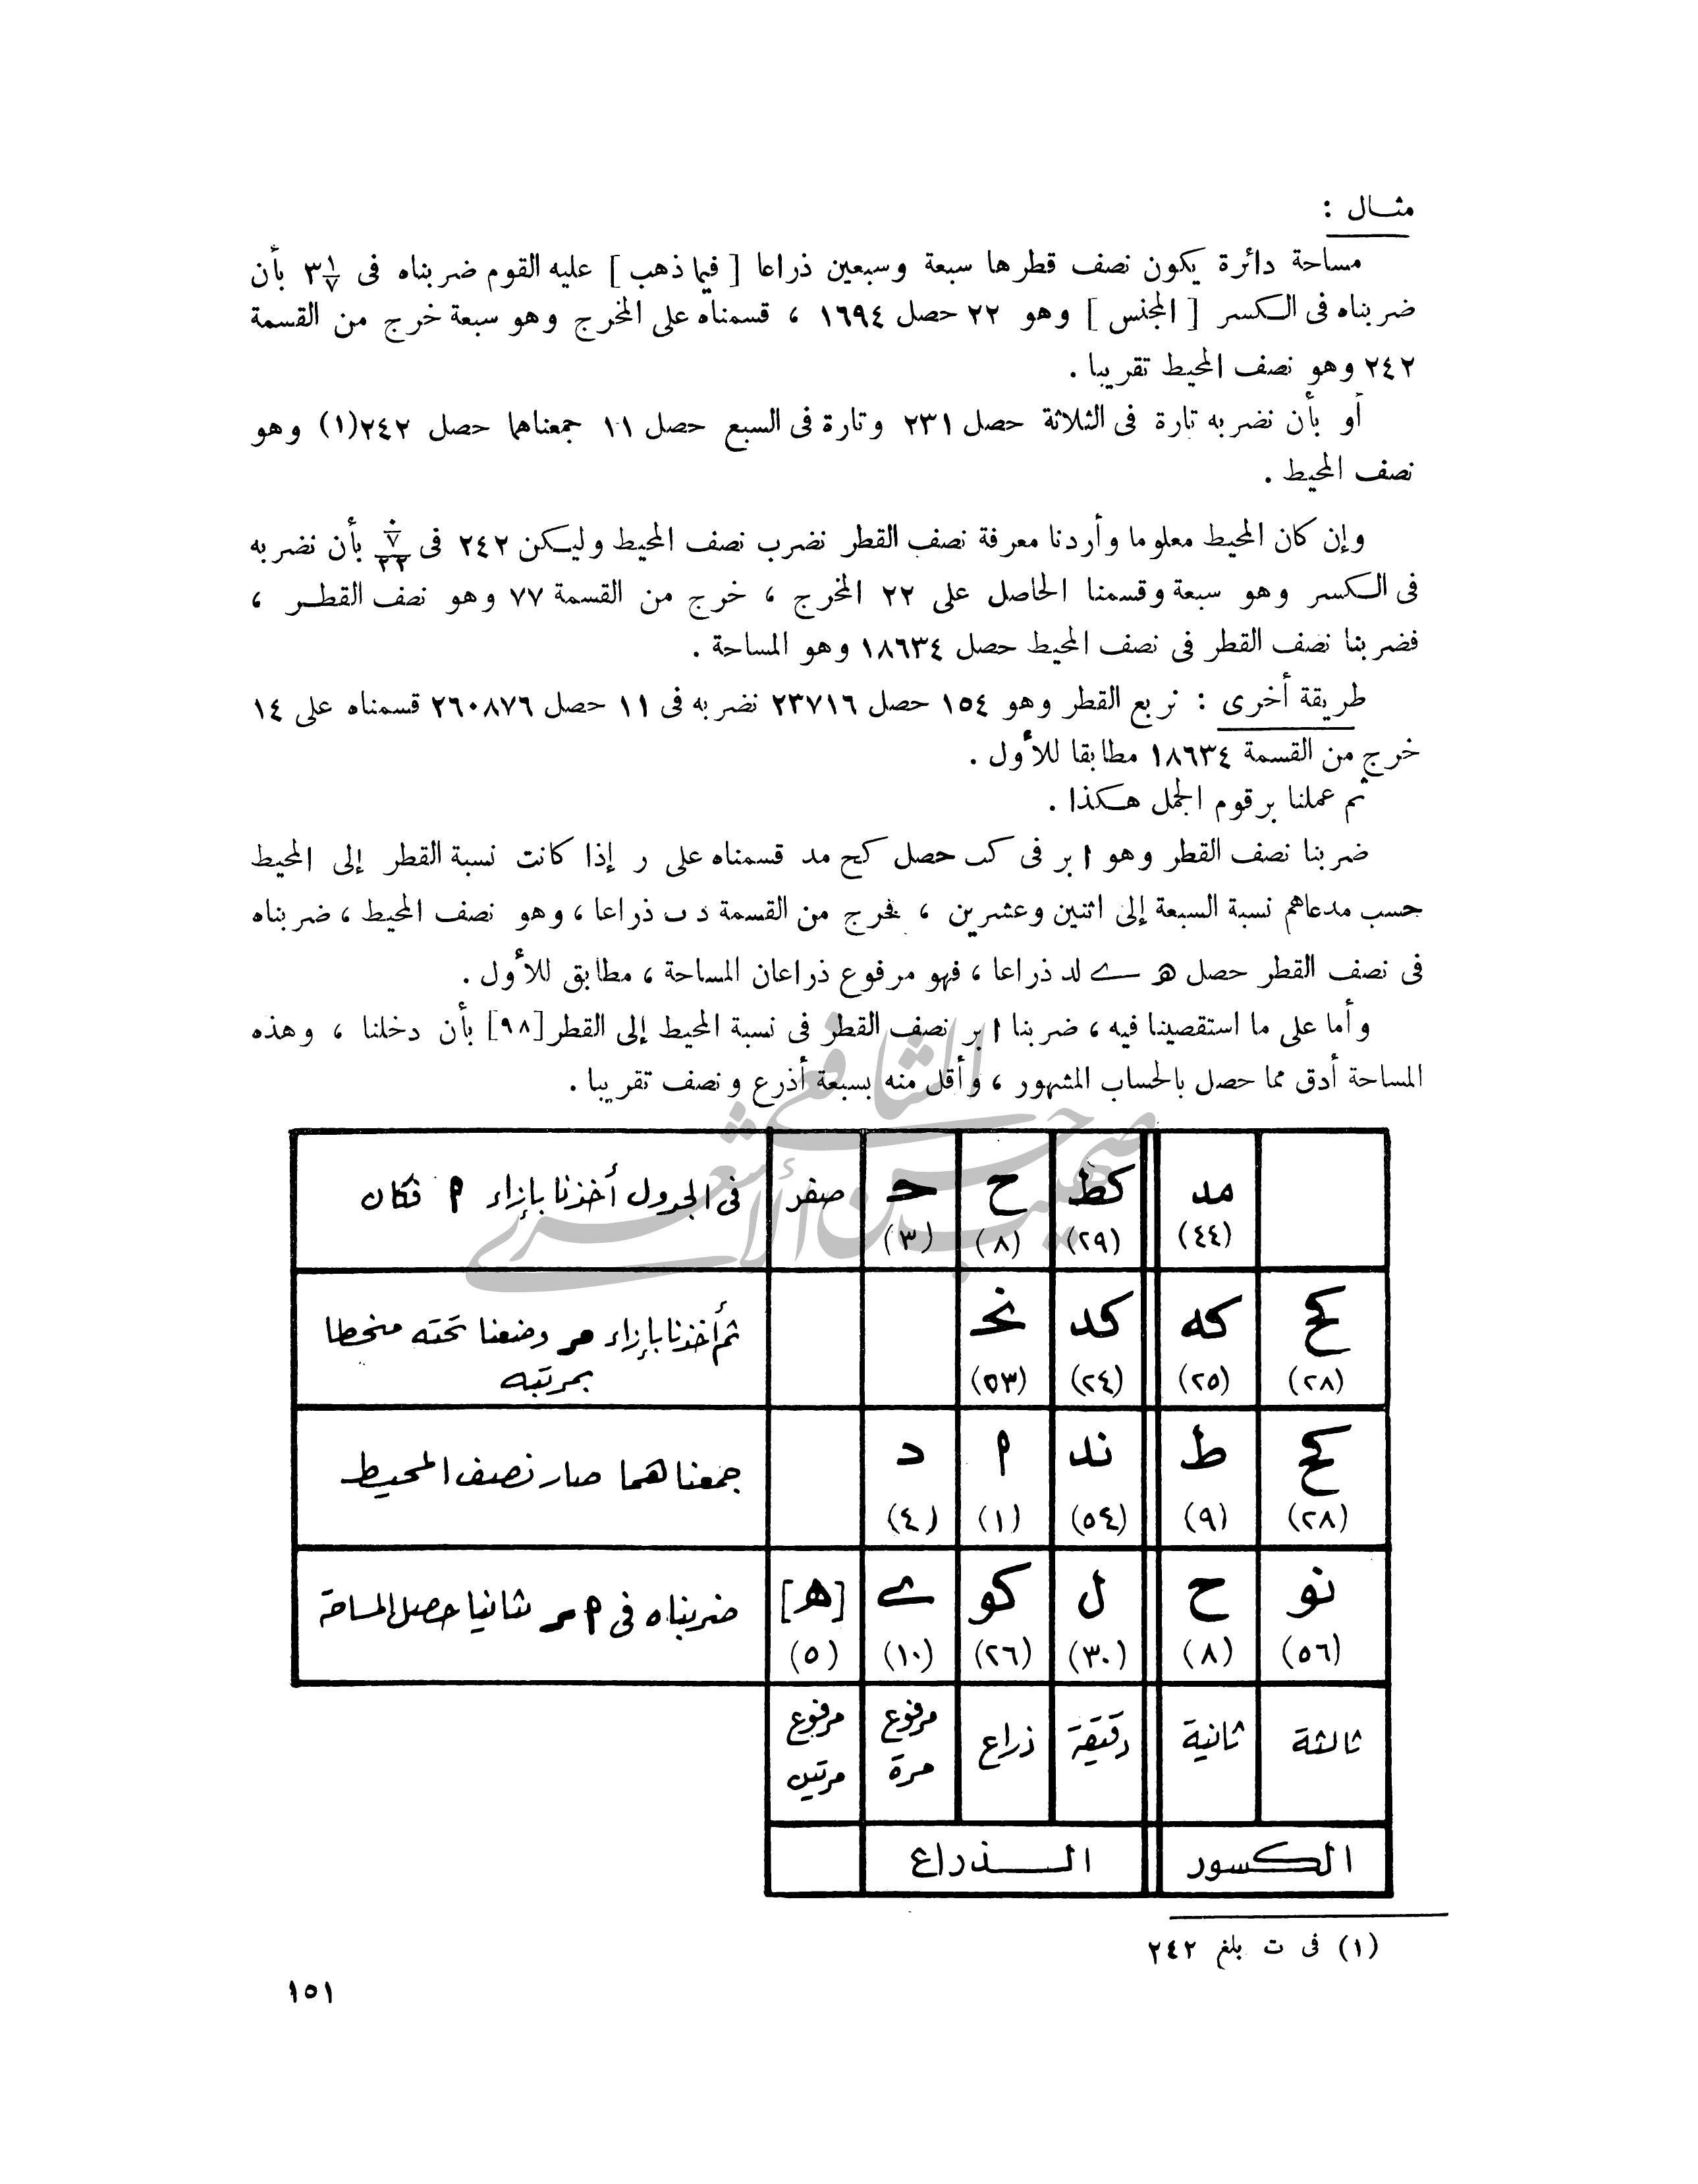 مثـال :
مساحة دائرة يكون نصف قطرها سبعة وسبعين ذراعا [ فيما ذهب ] عليه القوم ضربناه فى ٣ ١/٧ بأن
ضربناه فى الـكسر [ المجنس ] وهو ٢٢ حصل ١٦٩٤ ، قسمناه على المخرج وهو سبعة خرج من القسمة
٢٤٢ وهو نصف المحيط تقريبا .
أو بأن نضربه تارة فى الثلاثة حصل ٢٣١ وتارة فى السبع حصل ١١ جمعناهما حصل ٢٤٢(١) وهو
نصف المحيط .
وإن كان المحيط معلوما وأردنا معرفة نصف القطر نضرب نصف المحيط وليـكن ٢٤٢ فى ٧/٢٢ بأن نضربه
فى الـكسر وهو سبعة وقسمنا الحاصل على ٢٢ المخرج ، خرج من القسمة ٧٧ وهو نصف القطـر ،
فضربنا نصف القطر فى نصف المحيط حصل ١٨٦٣٤ وهو المساحة .
طريقة أخرى : نربع القطر وهو ١٥٤ حصل ٢٣٧١٦ نضربه فى ١١ حصل ٢٦٠٨٧٦ قسمناه على ١٤
خرج من القسمة ١٨٦٣٤ مطابقا للأول .
ثم عملنا برقوم الجمل هـكذا .
ضربنا نصف القطر وهو ا بر فى كب حصل كح مد قسمناه على ر إذا كانت نسبة القطر إلى المحيط
حسب مدعاهم نسبة السبعة إلى اثنين وعشرين ، فخرج من القسمة د ب ذراعا ، وهو نصف المحيط ، ضربناه
فى نصف القطر حصل هـ ے لد ذراعا ، فهو مرفوع ذراعان المساحة ، مطابق للأول .
وأما على ما استقصينا فيه ، ضربنا ا بر نصف القطر فى نسبة المحيط إلى القطر [٩٨] بأن دخلنا ، وهذه
المساحة أدق مما حصل بالحساب المشهور ، وأقل منه بسبعة أذرع ونصف تقريبا .
مد كط ح حـ صفر فى الجدول أخذنا بإزاء ا فكان
(٤٤) (٢٩) (٨) (٣)
كح كه كد نحـ ثم أخذنا بإزاء ر وضعنا تحته منحطا
بمرتبه
(٢٨) (٢٥) (٢٤) (٥٣)
كح ط ند ا د جمعناهما صار نصف المحيط
(٢٨) (٩) (٥٤) (١) (٤)
نو ح ل كو ے [هـ] ضربناه فى ا ر ثانيا حصل المساحة
(٥٦) (٨) (٣٠) (٢٦) (١٠) (٥)
ثالثة ثانية دقيقة ذراع مرفوع مرة مرفوع مرتين
الكسور الـذراع
(١) فى ت بلغ ٢٤٢
١٥١